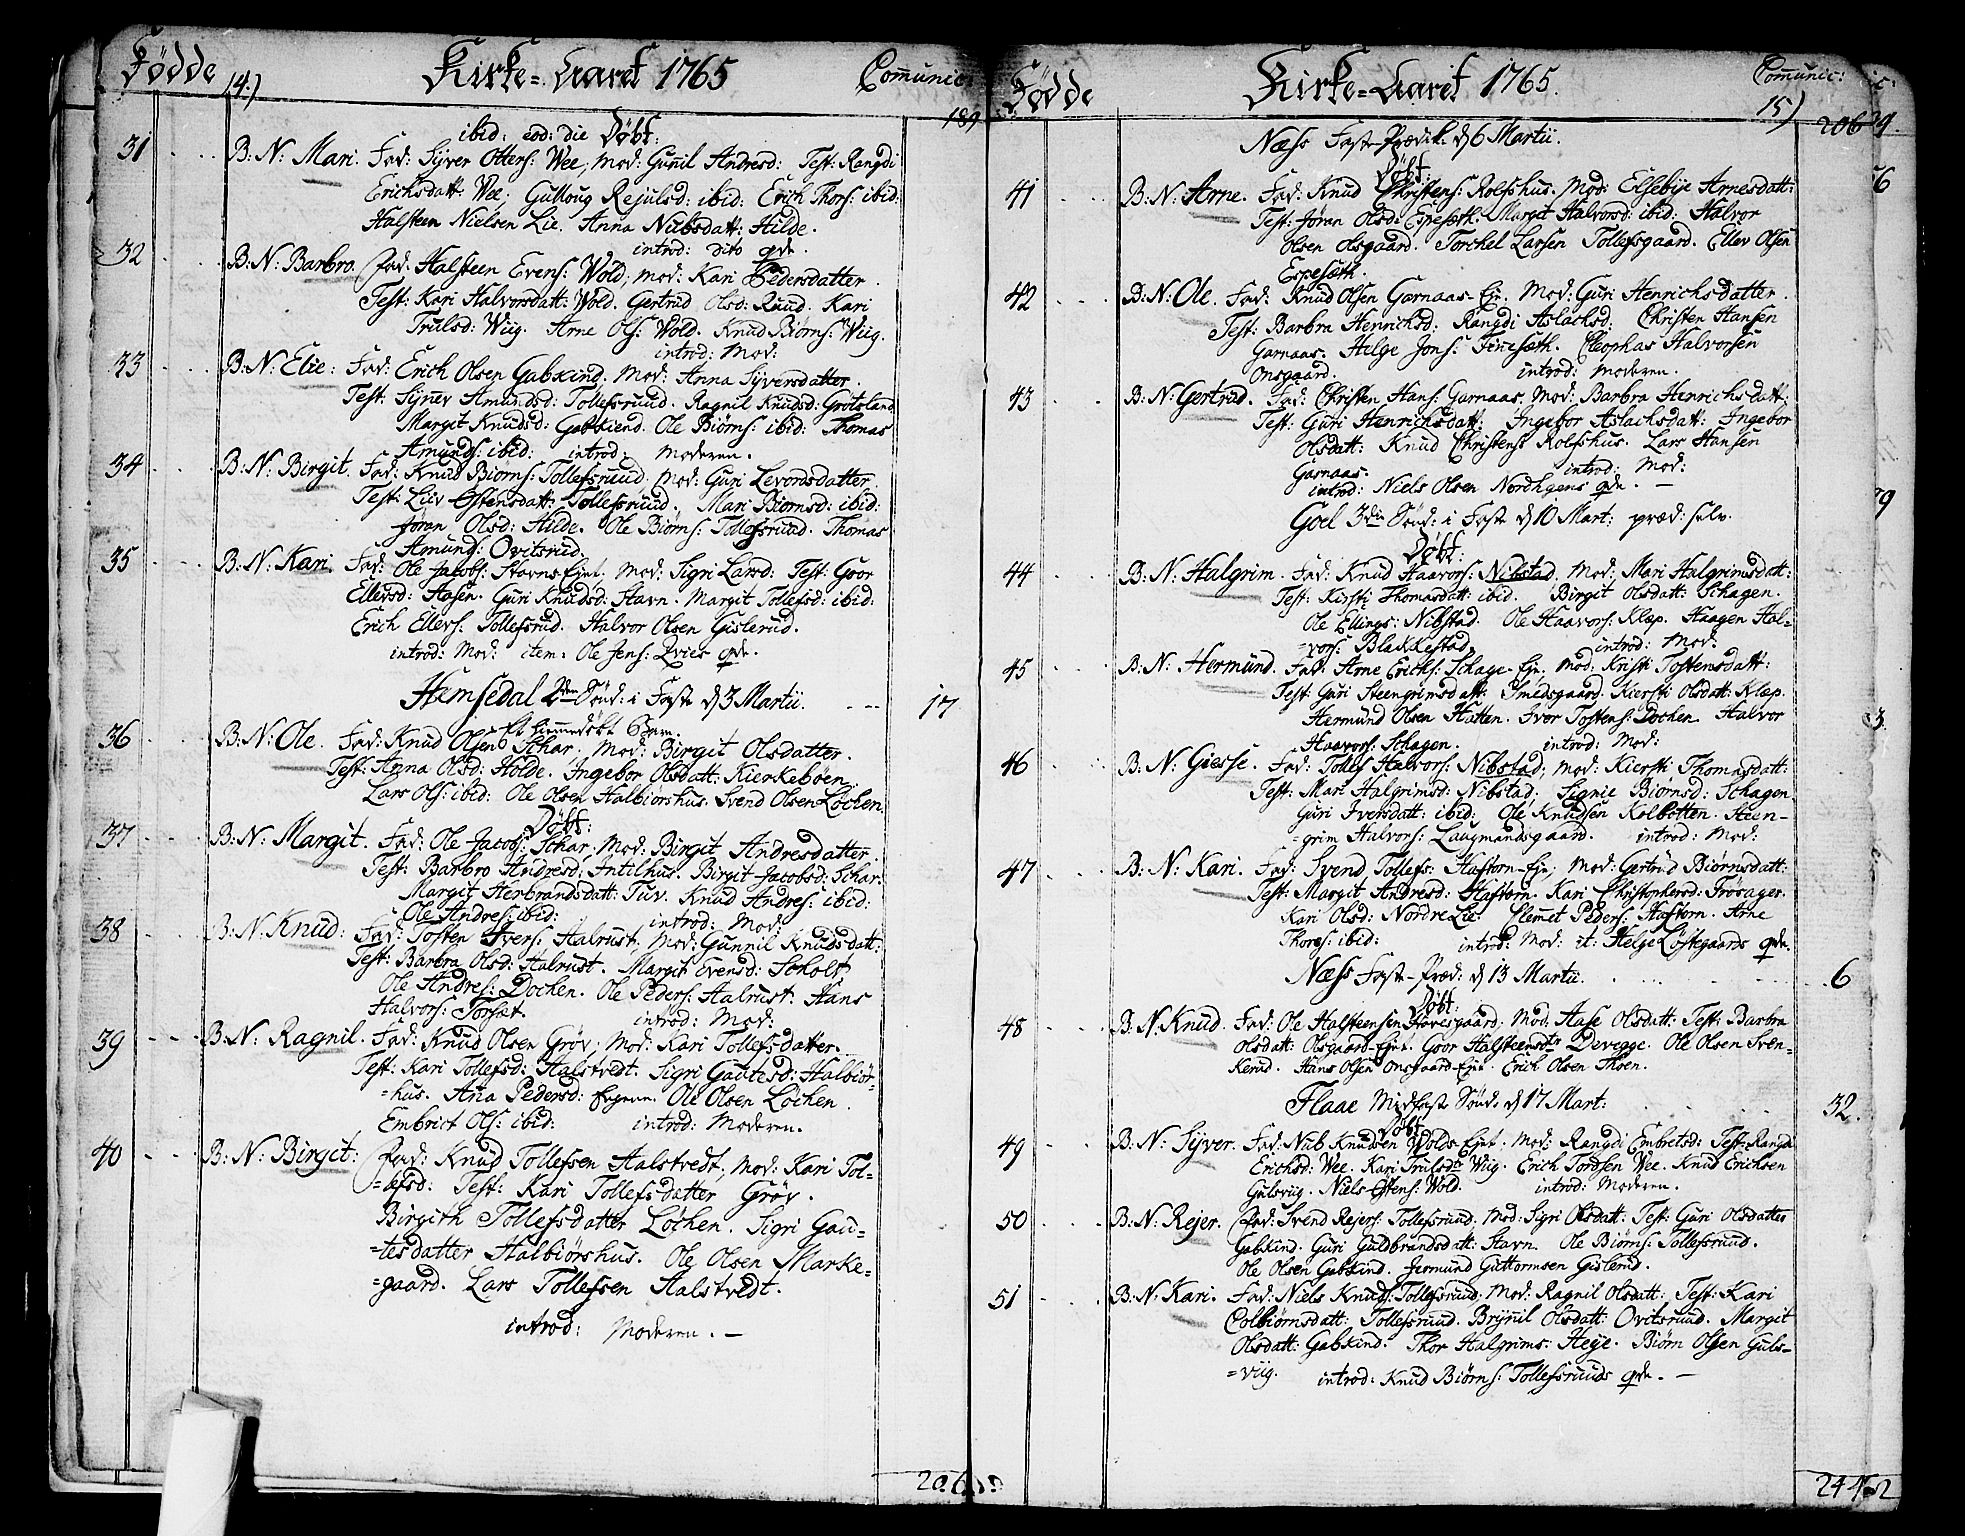 Fødde 14.) Kirke-Aaret 1765 Comunic:
189
ibid: eod: die Døbt:
31 B: N: Mari. Fad: Syver Otters: Wee, mod: Gunil Andresd: Test: Rangdi
Erichsdatt: Wee; Gulloug Rejulsd: ibid: Erich Thors: ibid:
Halsteen Nielsen Lie. Anna Nubsdatt: Hilde.
introd: dito qde.
32 B: N: Barbro. Fad: Halsteen Evens: Wold, mod: Kari Pedersdatter.
Test: Kari Halvorsdatt: Wold. Gertrud Olsd: Ruud. Kari
Trulsd: Wiig. Arne Ols: Wold. Knud Biørns: Wiig.
introd: Mod:
33 B: N: Elie: Fad: Erich Olsen Gabkind. Mod: Anna Syversdatter.
Test: Synev Amundsd: Tollefsruud. Ragnil Knudsd: Grøtsland
Margit Knudsd: Gabkiend. Ole Biørns: ibid: Thomas
Amunds: ibid: introd: Moderen.
34 B: N: Birgit. Fad: Knud Biørns: Tollefsruud. Mod: Guri Levordsdatter.
Test: Liiv Østensdatt: Tollefsruud. Mari Biørnsd: ibid:
Jøran Olsd: Hilde. Ole Biørns: Tollefsruud. Thomas
Amund: Ovitsrud.
35 B: N: Kari. Fad: Ole Jacobs: Stavns Ejet. Mod: Sigri Larsd: Test: Goor
Ellevsd: Aasen. Guri Knudsd: Stavn. Margit Tollefsd: ibid:
Erich Ellevs: Tollefsrud. Halvor Olsen Gislerud.
introd: Mod: item: Ole Jens: qde.
Hemsedal 2den Sønd: i Faste d 3 Martii. 17
Et hiemmedøbt Barn.
36 B: N: Ole. Fad: Knud Olsen Schar. Mod: Birgit Olsdatter.
Test: Anna Olsd: Holde. Ingebor Olsdatt: Kierkeboen.
Lars Ols: ibid: Ole Olsen Halbiørshus. Svend Olsen Løchen.
Døbt:
37 B: N: Margit. Fad: Ole Jacobs: Schar. Mod: Birgit Andresdatter
Test: Barbro Andresd: Intilhus. Birgit Jacobsd: Schar.
Margit Herbrandsdatt: Tuv. Knud Andres: ibid:
Ole Andres: ibid: introd: Mod:
38 B: N: Knud: Fad: Tosten Ivers: Halrust. Mod: Gunnil Knudsdatt:
Test: Barbra Olsd: Halrust. Margit Evensd: Scholt.
Ole Andres: Dochen. Ole Peders: Halrust. Hans
Halvors: Torsæt. introd: Mod:
39 B: N: Ragnil. Fad: Knud Olsen Grøv; Mod: Kari Tollefsdatter.
Test: Kari Tollefsd: Halstvedt. Sigri Gautesd: Halbiør-
=hus. Ana Pedersd: Ole Olsen Løchen.
Embrict Ols: ibid: introd: Moderen.
40 B: N: Birgit: Fad: Knud Tollefsen Halstvedt; Mod: Kari Tol-
=lefsd: Test: Kari Tollefsdatter Grøv.
Birgith Tollefsdatter Løchen. Sigri Gau-
=tesdatter Halbiørshus. Ole Olsen Marke-
=gaard. Lars Tollefsen Halstvedt.
introd: Moderen. —
206
Fødde Kirke-Aaret 1765. Comunic:
15)
206
Næss Faste-Prædik: d 6 Martii.
Døbt:
41 B: N: Arne. Fad: Knud Christens: Rolfshus. Mod: Elsebye Arnesdatt:
Test: Jøran Olsd: Espeseth. Margit Halvorsd: ibid: Halvor
Olsen Olsgaard. Torchel Larsen Tollefsgaard. Ellev Olsen
Espesæth.
42 B: N: Ole. Fad: Knud Olsen Garnaas-Eje. Mod: Guri Henrichsdatter.
Test: Barbra Henrichsd: Rangdi Aslachsd: Christen Hansen
Garnaas. Helge Jons: Finesæth. Cleophas Halvorsen
Onsgaard. introd: Moderen.
43 B: N: Gertrud. Fad: Christen Hans: Garnaas. Mod: Barbra Henrichsdatt:
Test: Guri Henrichsdatt: Ingebor Aslachsdatt: Ingebor
Olsdatt: Knud Christens: Rolfshus. Lars Hansen
Garnaas. introd: Mod:
introd: Niels Olsen Nordhgens qde. —
Goel 3die Sønd: i Faste d 10 Mart: præd: selv.
Døbt:
44 B: N: Halgrim. Fad: Knud Haavors: Nibstad. Mod: Mari Halgrimsdatt:
Test: Kirsti Thomasdatt: ibid. Birgit Olsdatt: Schagen.
Ole Ellings: Nibstad. Ole Haavors: Klæp. Haagen Hal-
=vors: Blakkestad. introd: Mod:
45 B: N: Hermund. Fad: Arne Erichs: Schage-Eje. Mod: Kristi Tostensdatt:
Test: Guri Steengrimsdatt: Smedsgaard. Kiersti Olsdatt: Klæp.
Hermund Olsen Hatten. Iver Tostens: Dochen. Halvor
Haavors: Schagen. introd: Mod:
46 B: N: Giesse. Fad: Tollef Halvors: Nibstad; Mod: Kiersti Thomasdatt:
Test: Mari Halgrimsd: Nibstad. Signie Biørnsd: Schagen.
Guri Iversdatt: ibid: Ole Knudsen Kolbotten. Steen-
=grim Halvors: Laugmandsgaard. introd: Mod:
47 B: N: Kari. Fad: Svend Tollefs: Haftorn-Eje; Mod: Gertrud Biørnsdatt:
Test: Margit Andresd: Haftorn. Kari Christophersd: Trøsager.
Kari Olsd: Nordre Lie. Clemet Peders: Haftorn. Arne
Thores: ibid: introd: Mod: it: Helge Løstegaards qde.
Næss Faste-Præd: d 13 Martii. 6
Døbt:
48 B: N: Knud. Fad: Ole Halsteensen Hovesgaard; Mod: Aase Olsdatt: Test: Barbra
Olsdatt: Olsgaard-Ejet. Goor Halsteensdr Devegge. Ole Olsen Sven-
kerud. Hans Olsen Onsgaard-Ejet. Erich Olsen Thoen.
Flaae Midfaste Sønd: d 17 Mart: 32.
Døbt:
49 B: N: Syver. Fad: Nub Knudsen Wolds-Ejet. Mod: Rangdi Embretsd: Test: Rangdi
Erichsd: Wee. Kari Trulsdr Wiig. Erich Tordsen Wee. Knud Erichsen
Gulsviig. Niels Østens: Wold. introd: Moderen.
50 B: N: Rejer. Fad: Svend Rejers: Tollefsruud; Mod: Sigri Olsdatt: Test: Guri Olsdatter
Gabkind. Guri Guldbrandsdatt: Stavn. Ole Biørns: Tollefsruud.
Ole Olsen Gabkind. Germund Guttormsen Gislerud.
51 B: N: Kari. Fad: Niels Knuds: Tollefsruud; Mod: Ragnil Olsdatt: Test: Kari
Colbiørnsdatt: Tollefsruud. Brynil Olsdatt: Ovitsruud. Margit
Olsdatt: Gabkind. Thor Halgrims: Heye. Biørn Olsen Guls-
=viig. introd: Knud Biørns: Tollefsruuds qde. —
244